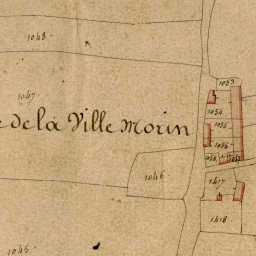 1048
1053
1047
1054
1055
e de la Ville Morin
1056
1046
1417
1418
1045